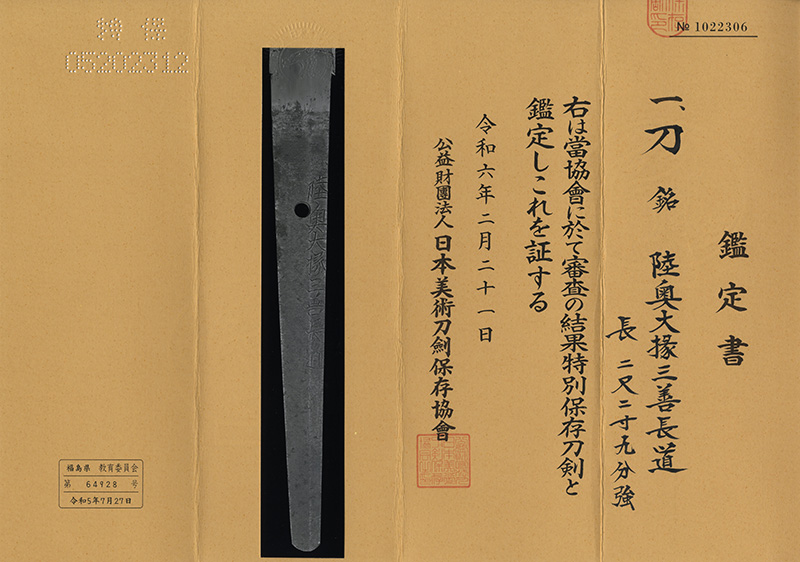 № 1022306
鑑定書
一、刀 銘 陸奥大掾三善長道
長 二尺二寸九分強
右は當協會に於て審査の結果特別保存刀剣と
鑑定しこれを証する
令和六年二月二十一日
公益財團法人 日本美術刀劍保存協會
陸奥大掾三善長道
特保
05202312
福島県 教育委員会
第 64928 号
令和5年7月27日